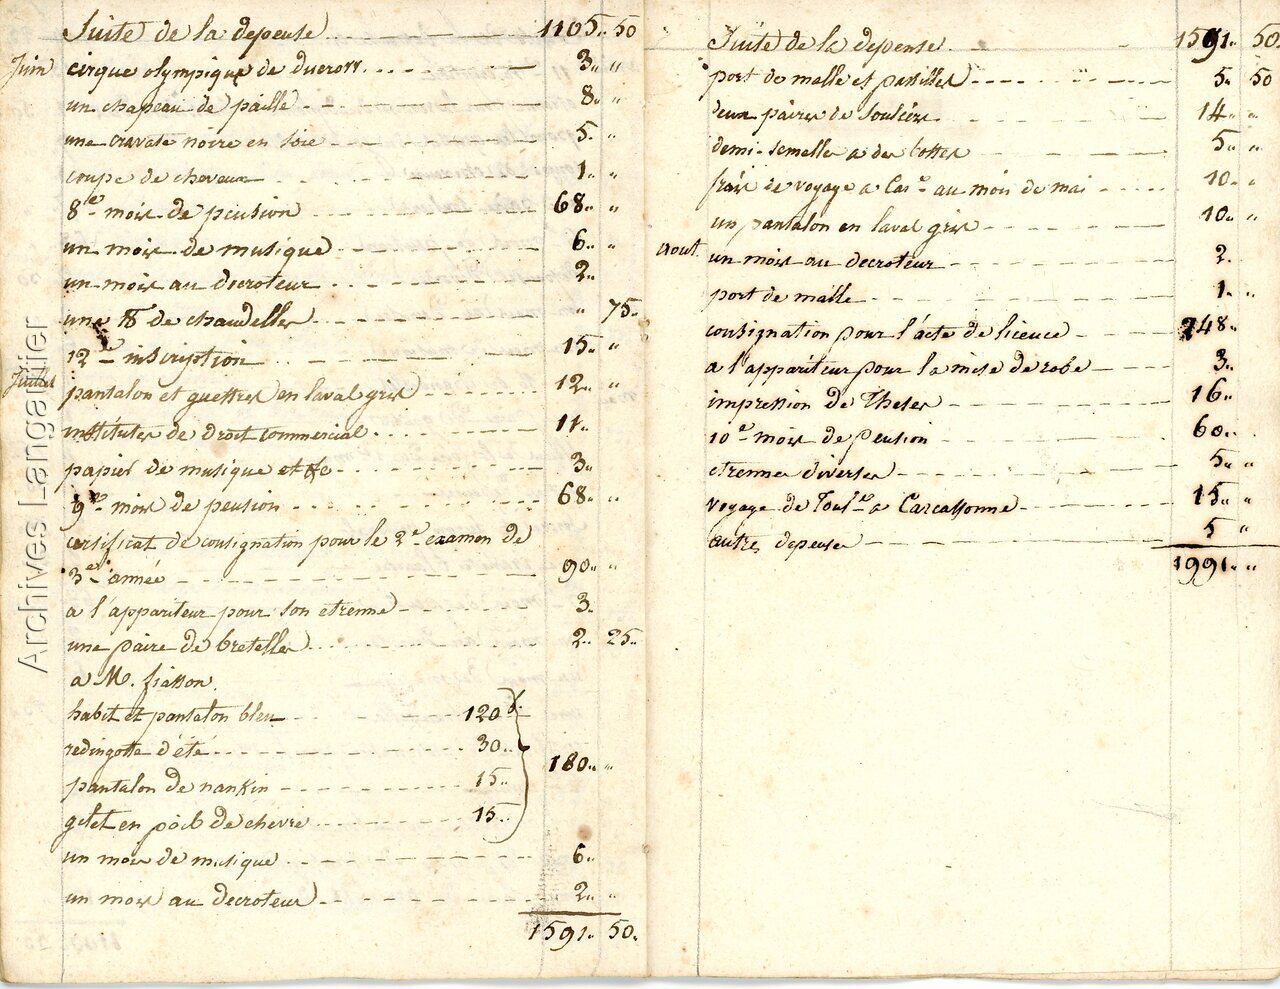 Suite de la depense 1105.. 50
Juin cirque olympique de ducrow 3.. "
un chapeau de paille 8.. "
une cravate noire en soie 5.. "
coupe de cheveux 1.. "
8e mois de pension 68.. "
un mois de musique 6.. "
un mois au decroteur 2..
une ℔ de chandelles " 75..
12e inscription 15.. "
Juillet pantalon et guettres en laval gris 12.. "
institutes de droit commercial 11..
papier de musique et 3..
9e mois de pension 68.. "
certificat de consignation pour le 2e examen de
3e année 90.. "
a l'appariteur pour son etrenne 3.
une paire de bretelles 2.. 25..
a M. fiasson.
habit et pantalon bleu 120 f.
redingotte d'été 30..
180.. "
pantalon de nankin 15..
gilet en poil de chevre 15..
un mois de musique 6..
un mois au decroteur 2.. "
1591.. 50.
Suite de la depense 1591.. 50.
port de malle et pastilles 5.. 50
deux paires de souliers 14.. "
demi-semelles a des bottes 5.. "
frais de voyage a Carne au mois de mai 10.. "
un pantalon en laval gris 10.. "
aout un mois au decroteur 2.
port de malle 1.. "
consignation pour l'acte de licence 148..
a l'appariteur pour la mise de robe 3..
impression de Theses 16..
10e mois de pension 60..
etrennes diverses 5.. "
voyage de Toulse a Carcassonne 15.. "
autres depenses 5 "
1991.. "
Archives Langautier